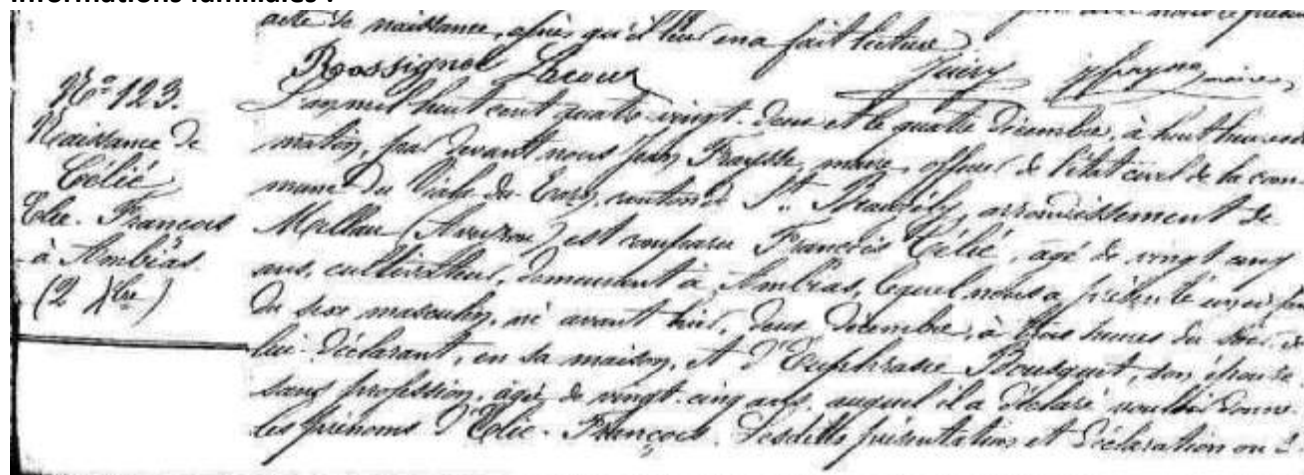 Informations familiales :
acte de naissance, après qu'il leur en a fait lecture
Rossignol Lacour
N° 123.
Naissance de
Célié
Elie-François
à Ambias.
(2 Xbre)
L'an mil huit cent quatre-vingt-deux et le quatre décembre, à huit heures du
matin, par devant nous Jean Fraysse, maire, officier de l'état civil de la com-
mune du Viala-du-Tarn, canton de St. Beauzély, arrondissement de
Millau (Aveyron) est comparu François Célié, âgé de vingt cinq
ans, cultivateur, demeurant à Ambias, lequel nous a présenté un enfant
du sexe masculin, né avant hier, deux décembre, à trois heures du soir, de
lui déclarant, en sa maison, et d'Euphrasie Bousquet, son épouse,
sans profession, âgée de vingt-cinq ans, auquel il a déclaré vouloir donner
les prénoms d'Elie-François. Lesdites présentation et déclaration ou